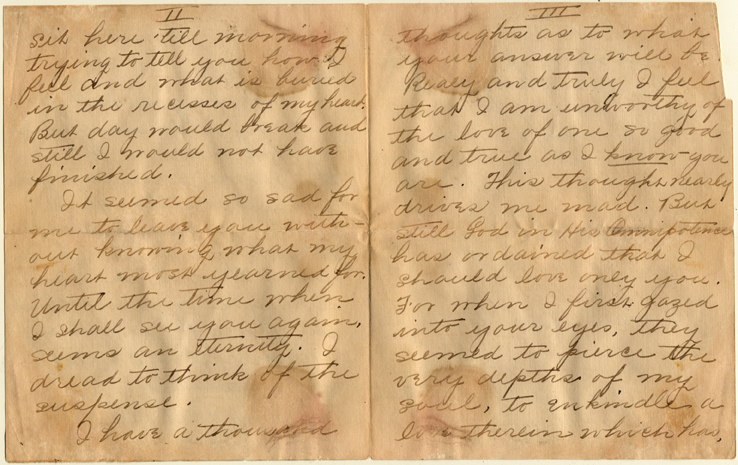 II
sit here 'till morning
trying to tell you how I
feel and what is buried
in the recesses of my heart.
But day would break and
still I would not have
finished.
It seemed so sad for
me to leave you with-
out knowing what my
heart most yearned for.
Until the time when
I shall see you again,
seems an eternity. I
dread to think of the
suspense.
I have a thousand
III
thoughts as to what
your answer will be.
Realy and truly I feel
that I am unworthy of
the love of one so good
and true as I know you
are. This thought nearly
drives me mad. But
still God in His Omnipotence
has ordained that I
should love only you.
For when I first gazed
into your eyes, they
seemed to pierce the
very depths of my
soul, to enkindle a
love therein which has,